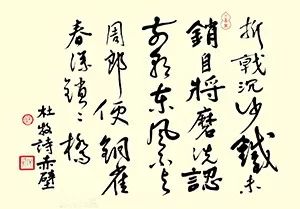 折戟沉沙鐵未
銷自將磨洗認
前朝東風不與
周郎便銅雀
春深鎖二橋
杜牧詩赤壁